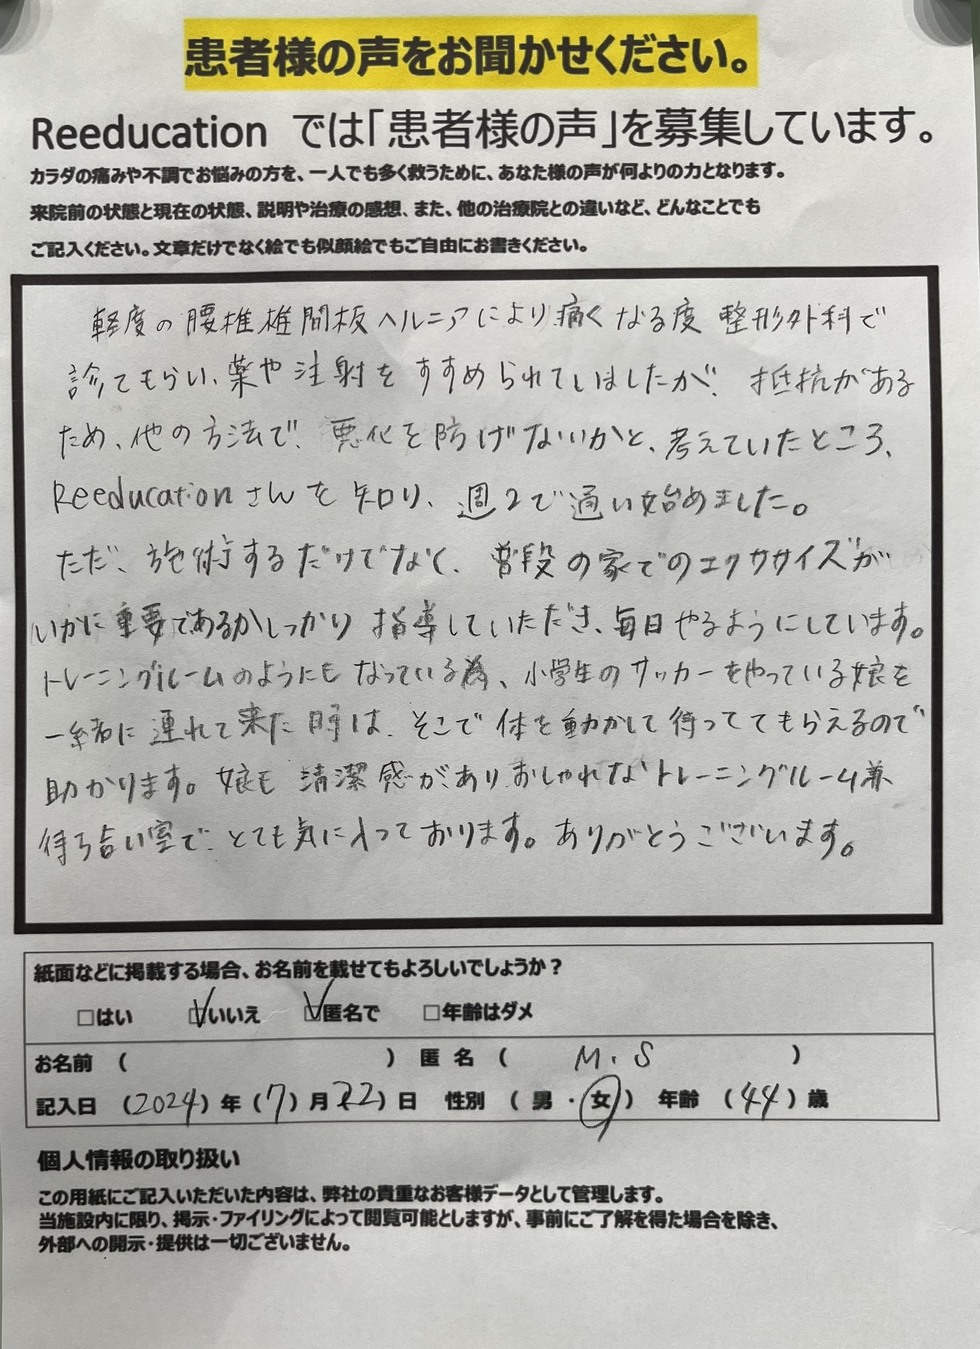 患者様の声をお聞かせください。
Reeducation では「患者様の声」を募集しています。
カラダの痛みや不調でお悩みの方を、一人でも多く救うために、あなた様の声が何よりの力となります。
来院前の状態と現在の状態、説明や治療の感想、また、他の治療院との違いなど、どんなことでも
ご記入ください。文章だけでなく絵でも似顔絵でもご自由にお書きください。
軽度の腰椎椎間板ヘルニアにより痛くなる度 整形外科で
診てもらい、薬や注射をすすめられていましたが、抵抗がある
ため、他の方法で、悪化を防げないかと、考えていたところ、
Reeducationさんを知り、週2で通い始めました。
ただ、施術するだけでなく、普段の家でのエクササイズが
いかに重要であるかしっかり指導していただき、毎日やるようにしています。
トレーニングルームのようにもなっている為、小学生のサッカーをやっている娘を
一緒に連れて来た時は、そこで体を動かして待っててもらえるので
助かります。娘も清潔感がありおしゃれなトレーニングルーム兼
待ち合い室で、とても気に入っております。ありがとうございます。
紙面などに掲載する場合、お名前を載せてもよろしいでしょうか？
□はい ☑いいえ ☑匿名で □年齢はダメ
お名前 （ ） 匿名 （ M.S ）
記入日 （2024）年（7）月22）日 性別 （ 男・女 ） 年齢 （44）歳
個人情報の取り扱い
この用紙にご記入いただいた内容は、弊社の貴重なお客様データとして管理します。
当施設内に限り、掲示・ファイリングによって閲覧可能としますが、事前にご了解を得た場合を除き、
外部への開示・提供は一切ございません。